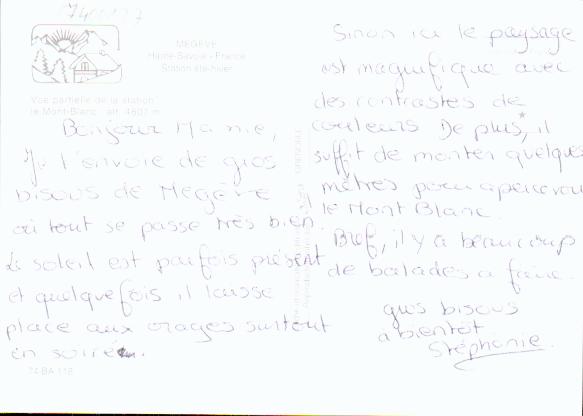 MEGEVE
Haute-Savoie - France
Station été-hiver
Vue partielle de la station
le Mont-Blanc alt. 4807 m
Bonjour Mamie,
Je t'envoie de gros
bisous de Megève
où tout se passe très bien.
Le soleil est parfois présent
et quelquefois il laisse
place aux orages surtout
en soirée.
74 BA 118
Sinon ici le paysage
est magnifique avec
des contrastes de
couleurs De plus, il
suffit de monter quelques
mètres pour apercevoir
le Mont Blanc.
Bref, il y a beaucoup
de balades a faire.
gros bisous
a bientot
Stéphanie.